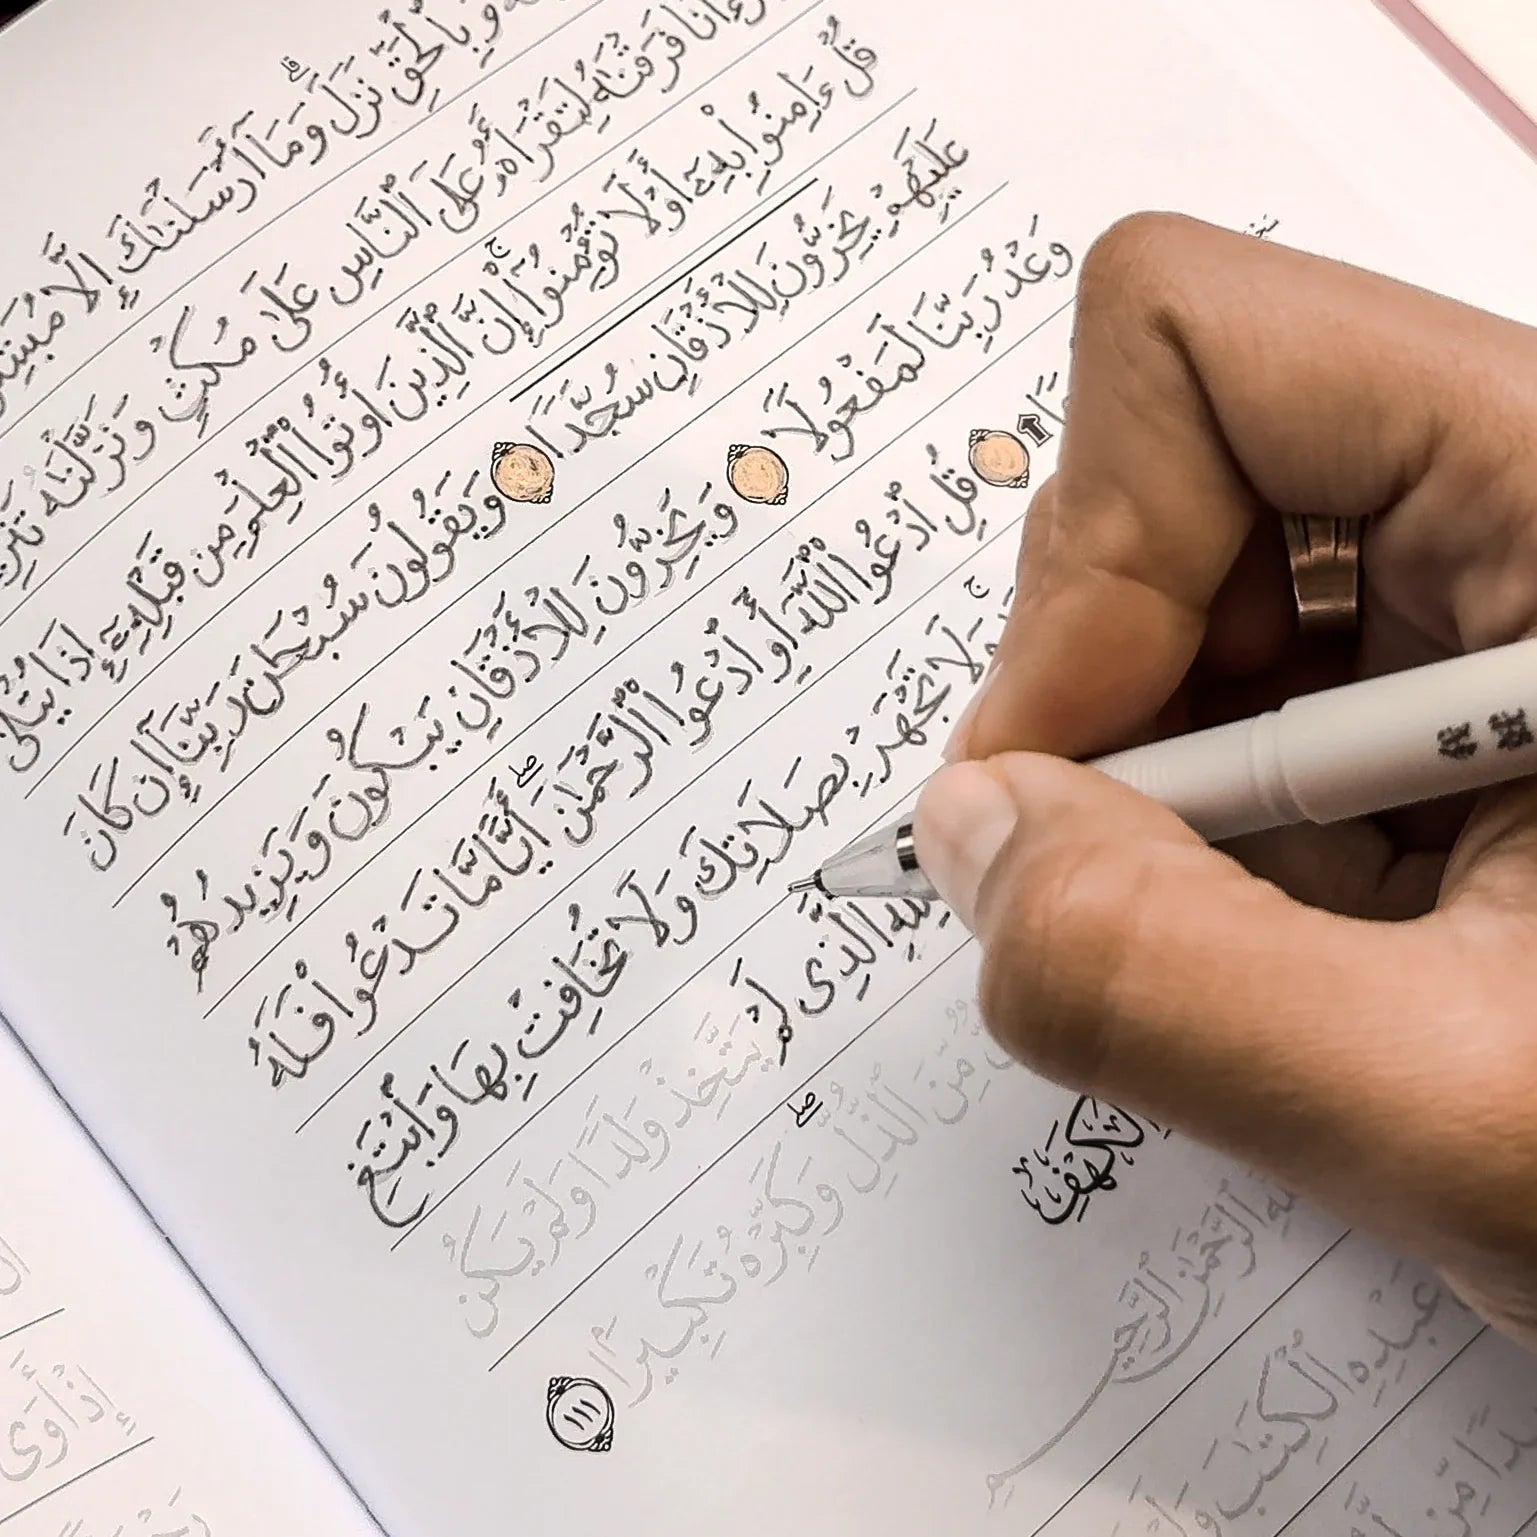 وَبِٱلْحَقِّ نَزَلَ ۗ وَمَآ أَرْسَلْنَـٰكَ إِلَّا مُبَشِّرًا
فَرَقْنَـٰهُ لِتَقْرَأَهُۥ عَلَى ٱلنَّاسِ عَلَىٰ مُكْثٍ وَنَزَّلْنَـٰهُ
قُلْ ءَامِنُوا۟ بِهِۦٓ أَوْ لَا تُؤْمِنُوٓا۟ ۚ إِنَّ ٱلَّذِينَ أُوتُوا۟ ٱلْعِلْمَ مِن قَبْلِهِۦٓ إِذَا يُتْلَىٰ
عَلَيْهِمْ يَخِرُّونَ لِلْأَذْقَانِ سُجَّدًا وَيَقُولُونَ سُبْحَـٰنَ رَبِّنَآ إِن كَانَ
وَعْدُ رَبِّنَا لَمَفْعُولًا وَيَخِرُّونَ لِلْأَذْقَانِ يَبْكُونَ وَيَزِيدُهُمْ
قُلِ ٱدْعُوا۟ ٱللَّهَ أَوِ ٱدْعُوا۟ ٱلرَّحْمَـٰنَ ۖ أَيًّا مَّا تَدْعُوا۟ فَلَهُ
ۚ وَلَا تَجْهَرْ بِصَلَاتِكَ وَلَا تُخَافِتْ بِهَا وَٱبْتَغِ
ٱلَّذِى لَمْ يَتَّخِذْ وَلَدًا وَلَمْ يَكُن
مِّنَ ٱلذُّلِّ ۖ وَكَبِّرْهُ تَكْبِيرًۢا ١١١
ٱلْكَهْفِ
ٱلرَّحْمَـٰنِ ٱلرَّحِيمِ
عَبْدِهِ ٱلْكِتَـٰبَ وَلَمْ
إِذْ أَوَى